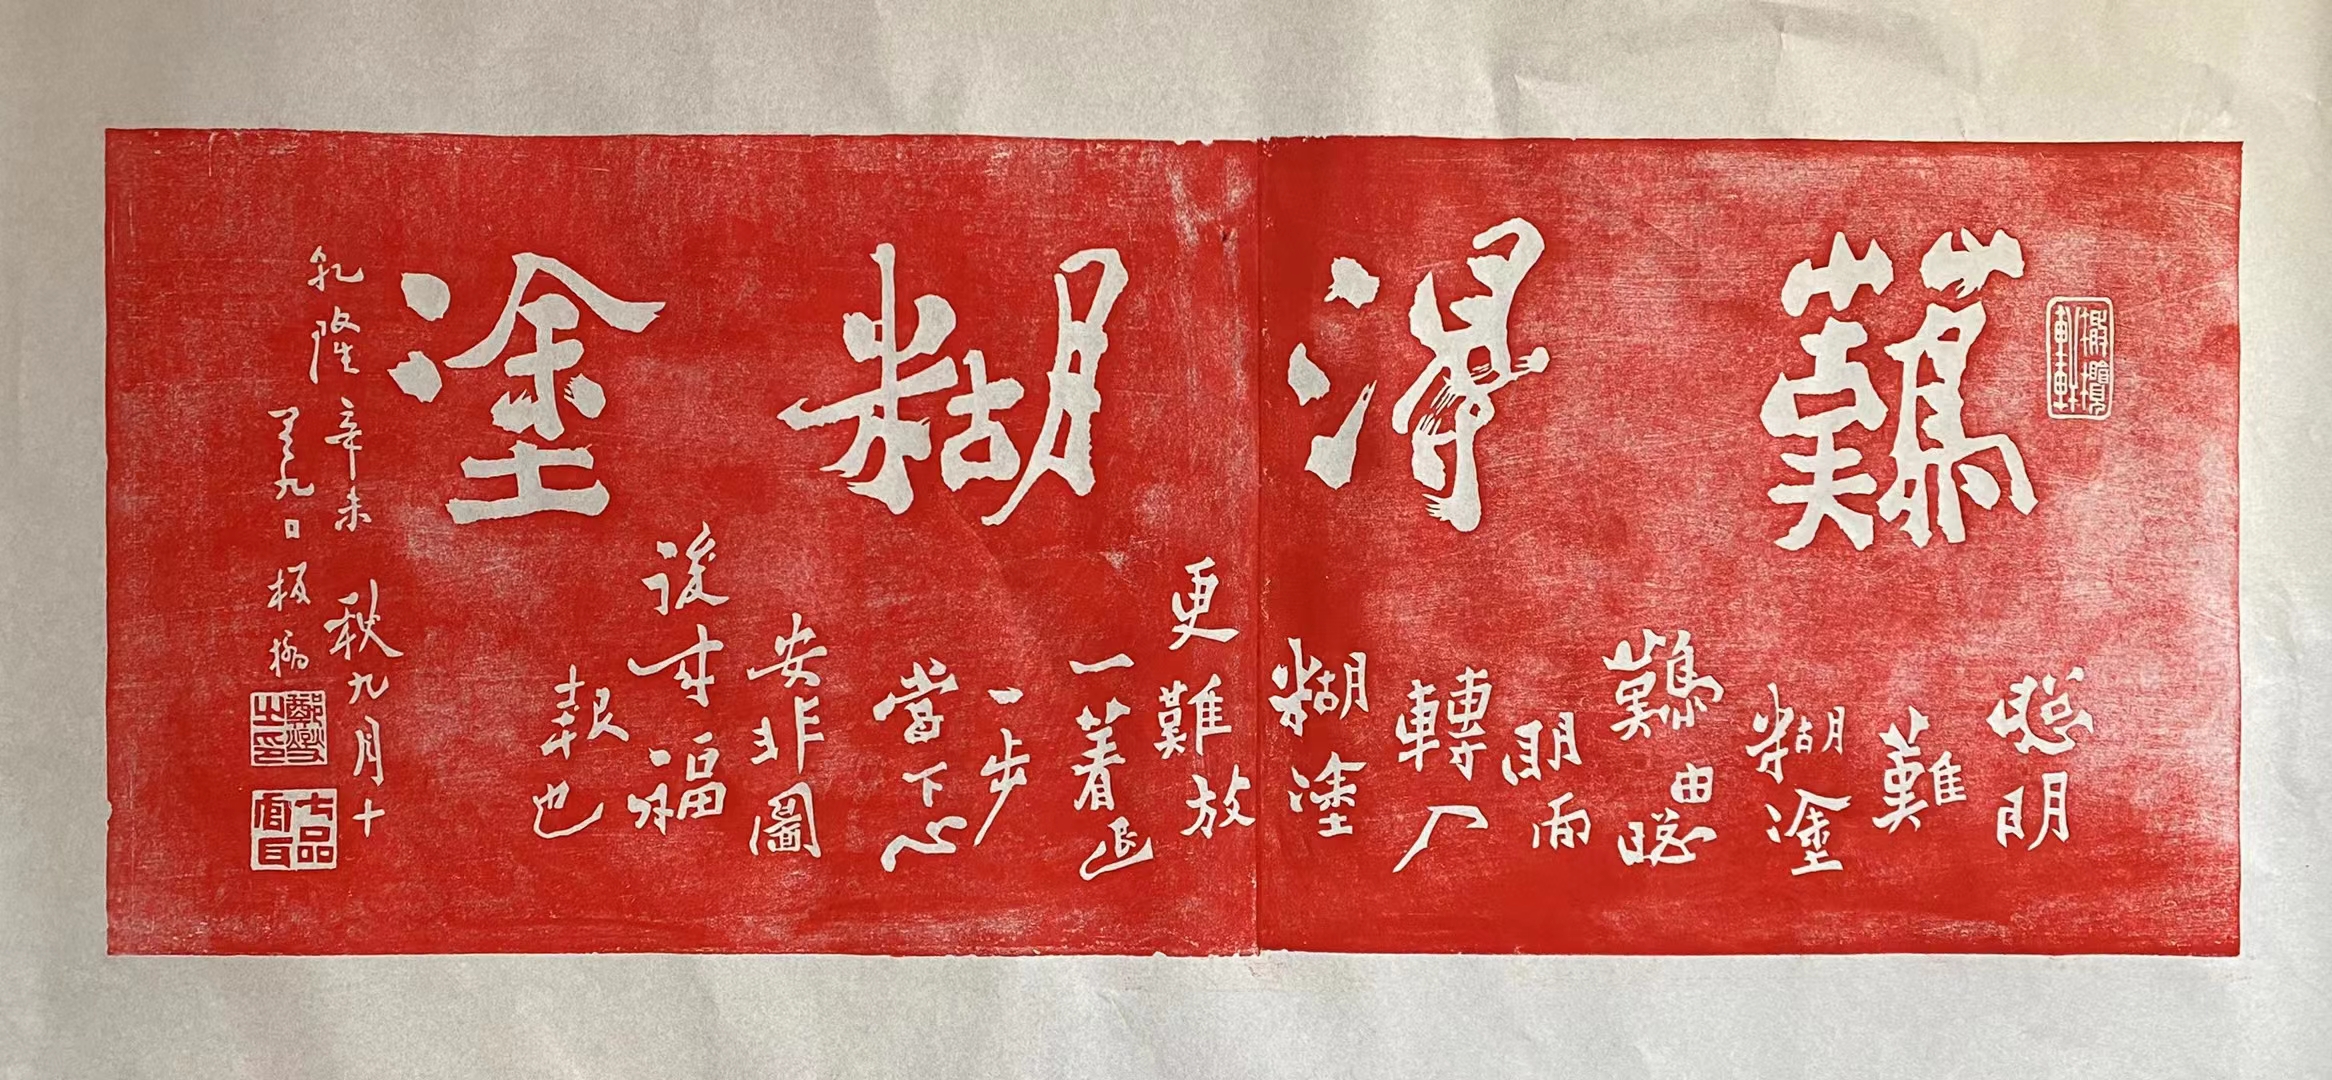 橄欖軒
難得糊塗
聰明
難
糊塗
難由聰
明而
轉入
糊塗
更難放
一着退
一步
當下心
安非圖
後來福
報也
乾隆辛未秋九月十
有九日板橋
鄭燮之印
七品官耳